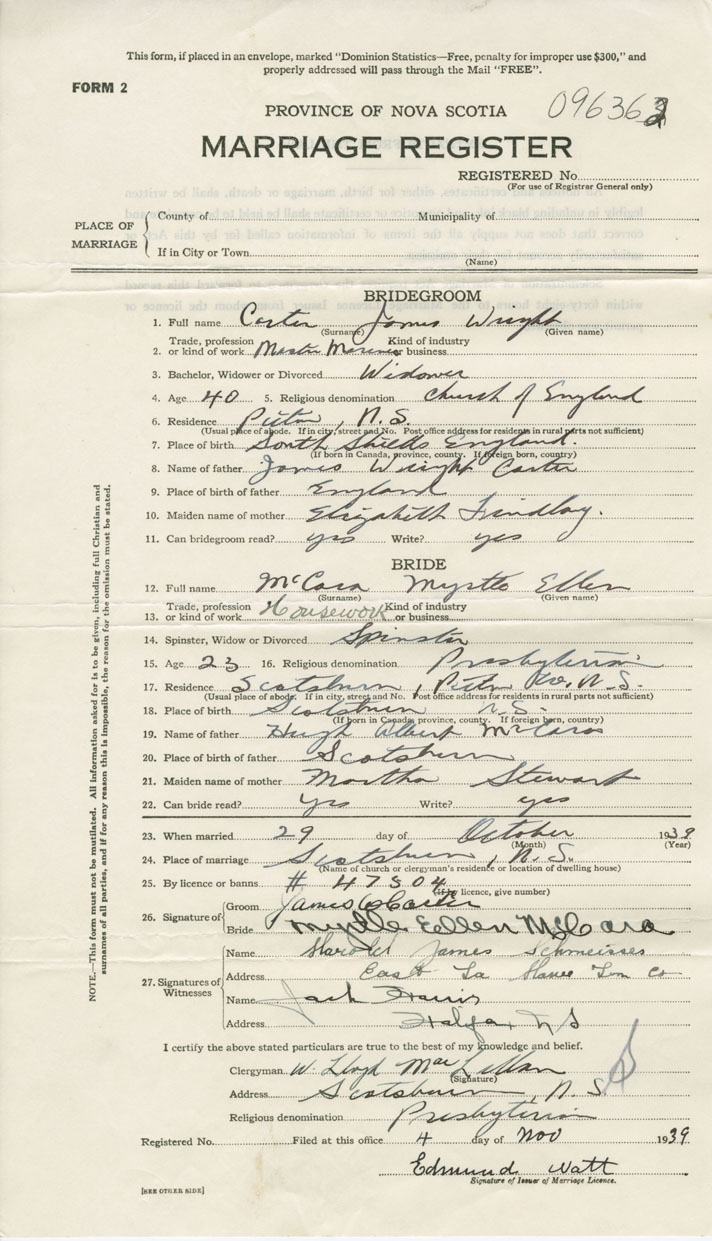 This form, if placed in an envelope, marked "Dominion Statistics—Free, penalty for improper use $300," and
properly addressed will pass through the Mail "FREE".
FORM 2
PROVINCE OF NOVA SCOTIA
096363
MARRIAGE REGISTER
REGISTERED No.
(For use of Registrar General only)
PLACE OF MARRIAGE
County of
Municipality of
If in City or Town
(Name)
BRIDEGROOM
1. Full name Carter James Wright
(Surname) (Given name)
Trade, profession Kind of industry
2. or kind of work Master Mariner or business
3. Bachelor, Widower or Divorced Widower
4. Age 40 5. Religious denomination Church of England
6. Residence Pictou, N.S.
(Usual place of abode. If in city, street and No. Post office address for residents in rural parts not sufficient)
7. Place of birth South Shields England.
(If born in Canada, province, county. If foreign born, country)
8. Name of father James Wright Carter
9. Place of birth of father England
10. Maiden name of mother Elizabeth Findlay.
11. Can bridegroom read? yes Write? yes
BRIDE
12. Full name McCara Myrtle Ellen
(Surname) (Given name)
Trade, profession Kind of industry
13. or kind of work Housework or business
14. Spinster, Widow or Divorced Spinster
15. Age 23 16. Religious denomination Presbyterian
17. Residence Scotsburn, Pictou Co., N.S.
(Usual place of abode. If in city, street and No. Post office address for residents in rural parts not sufficient)
18. Place of birth Scotsburn N.S.
(If born in Canada, province, county. If foreign born, country)
19. Name of father Hugh Albert McCara
20. Place of birth of father Scotsburn
21. Maiden name of mother Martha Stewart
22. Can bride read? yes Write? yes
23. When married 29 day of October 1939
(Month) (Year)
24. Place of marriage Scotsburn, N.S.
(Name of church or clergyman's residence or location of dwelling house)
25. By licence or banns # 47304
(If by licence, give number)
26. Signature of
Groom James W Carter
Bride Myrtle Ellen McCara
27. Signatures of Witnesses
Name Harold James
Address East
Name Jack Harris
Address Halifax NS
I certify the above stated particulars are true to the best of my knowledge and belief.
Clergyman W. Lloyd MacLellan
(Signature)
Address Scotsburn, N.S.
Religious denomination Presbyterian
Registered No. Filed at this office 4 day of Nov 1939
Edmund Watt
Signature of Issuer of Marriage Licence.
[SEE OTHER SIDE]
NOTE.—This form must not be mutilated. All information asked for is to be given, including full Christian and
surnames of all parties, and if for any reason this is impossible, the reason for the omission must be stated.